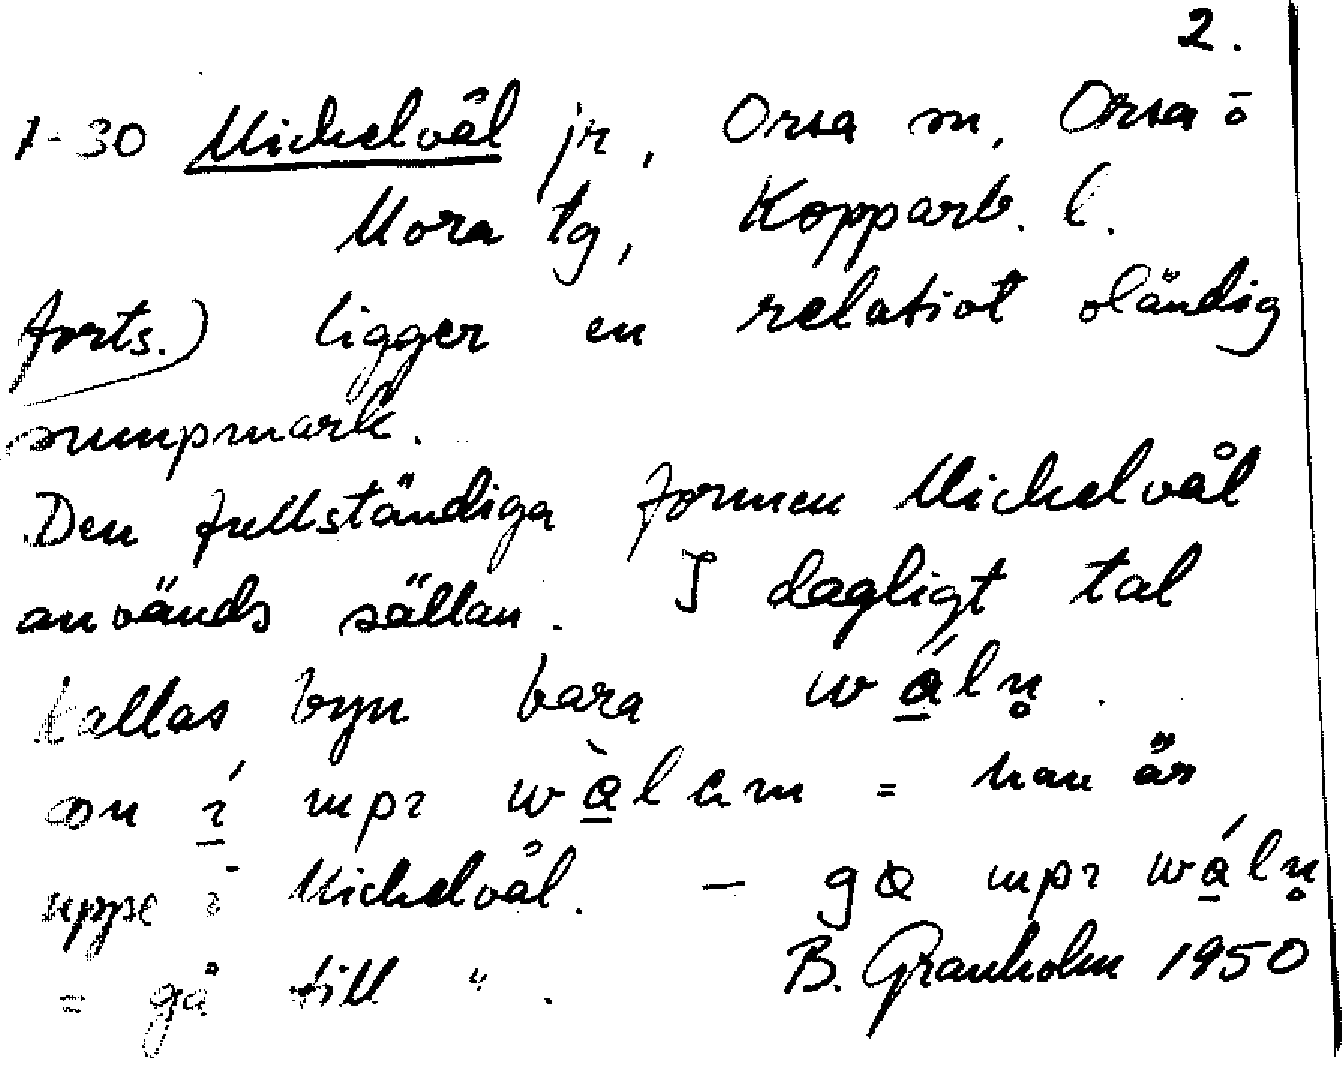 2.
1-30 Mickelvål jr, Orsa sn, Orsa o
Mora tg, Kopparb. l.
forts.) ligger en relativt oländig
sumpmark.
Den fullständiga formen Mickelvål
används sällan. I dagligt tal
kallas byn bara wálṇ.
on í upı wàlam = han är
uppe i Mickelvål. – gɑ upı wálṇ
= gå till ". B. Granholm 1950